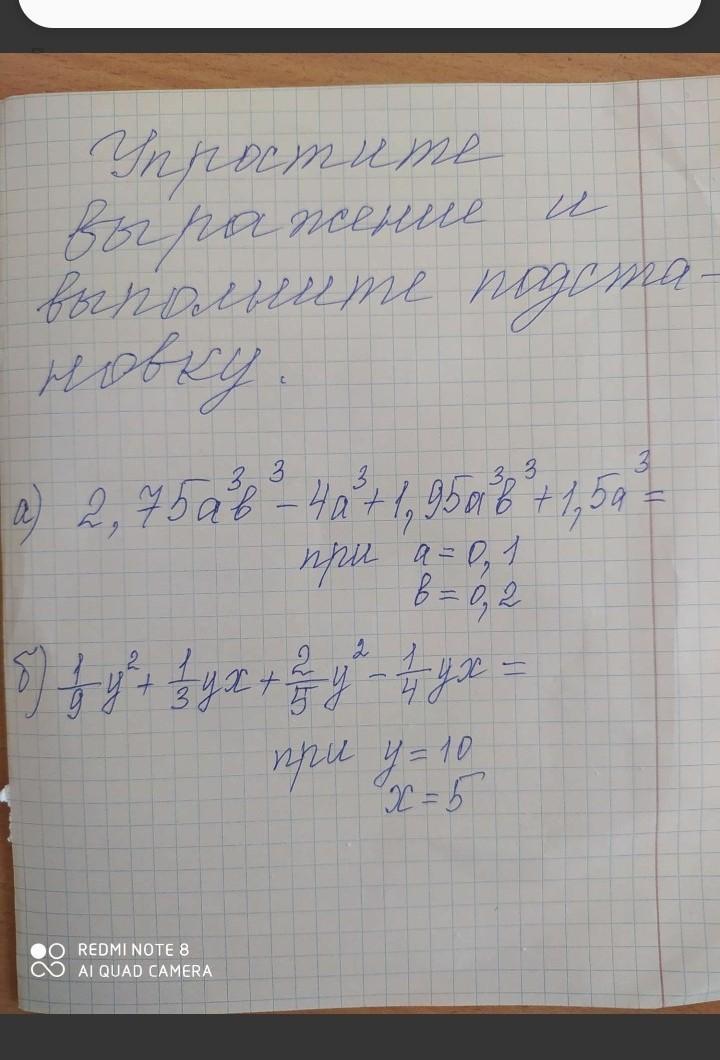 Упростите
выражение и
выполните подста-
новку.
а) 2,75a³b³ - 4a³ + 1,95a³b³ + 1,5a³ =
при a = 0,1
b = 0,2
б) 1/9 y² + 1/3 yx + 2/5 y² - 1/4 yx =
при y = 10
x = 5
REDMI NOTE 8
AI QUAD CAMERA